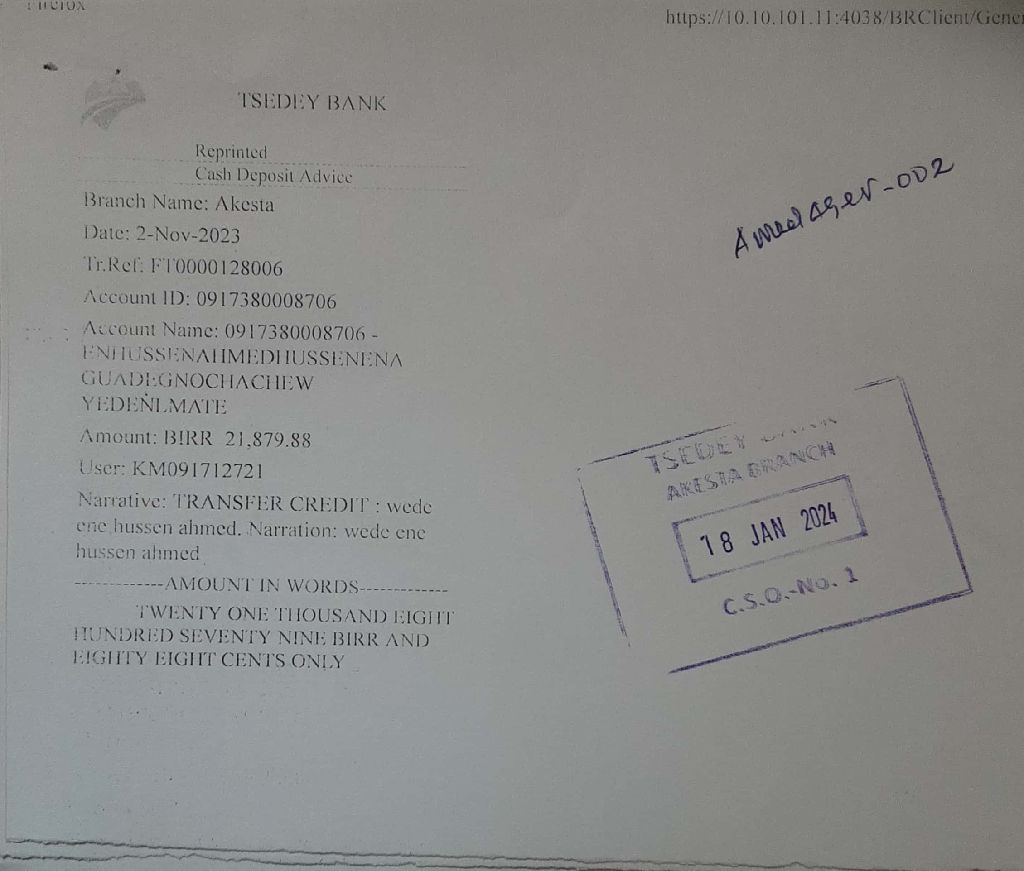 Firefox
https://10.10.101.11:4038/BRClient/Gener
TSEDEY BANK
Reprinted
Cash Deposit Advice
Branch Name: Akesta
Date: 2-Nov-2023
Tr.Ref: FT0000128006
Account ID: 0917380008706
Account Name: 0917380008706 -
ENHUSSENAHMEDHUSSENENA
GUADEGNOCHACHEW
YEDENLMATE
Amount: BIRR 21,879.88
User: KM091712721
Narrative: TRANSFER CREDIT : wede
ene hussen ahmed. Narration: wede ene
hussen ahmed
------------AMOUNT IN WORDS------------
TWENTY ONE THOUSAND EIGHT
HUNDRED SEVENTY NINE BIRR AND
EIGHTY EIGHT CENTS ONLY
-002
TSEDEY BANK
AKESTA BRANCH
18 JAN 2024
C.S.O.-No. 1